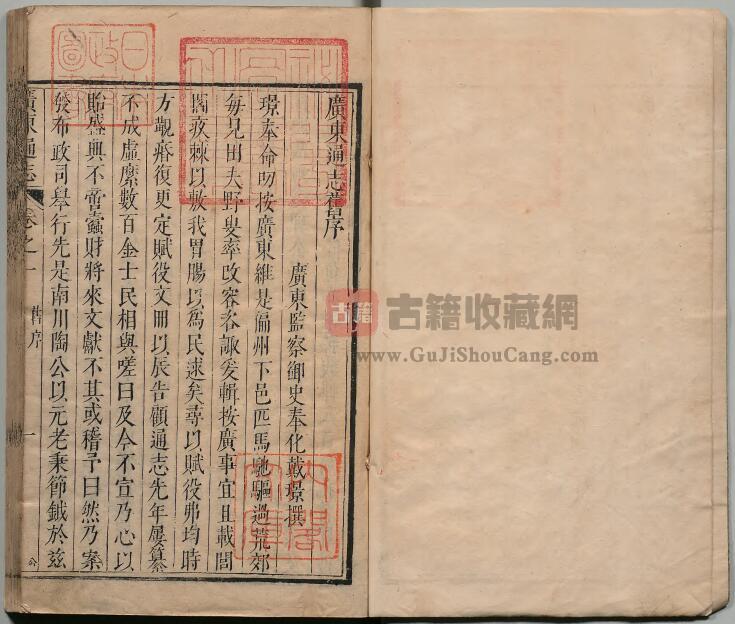 廣東通志舊序
廣東監察御史奉化戴璟撰
璟奉命叨按廣東維是偏州下邑匹馬馳驅過荒郊
每見田夫野叟率改容咨諏爰輯按廣事宜且載閭
閻疾棘以敷我胃腸以爲民逑矣尋以賦役弗均時
方觀瘠復更定賦役文冊以辰告顧通志先年屢纂
不成虛縻數百金士民相與嗟曰及今不宣乃心以
貽盛典不啻蠧財將來文獻不其或稽予曰然乃案
發布政司舉行先是南川陶公以元老秉節鉞於兹
廣東通志
卷之一
舊序
一
古籍
古籍收藏網
www.GuJiShouCang.com
日本
政府
圖書
内閣
文庫